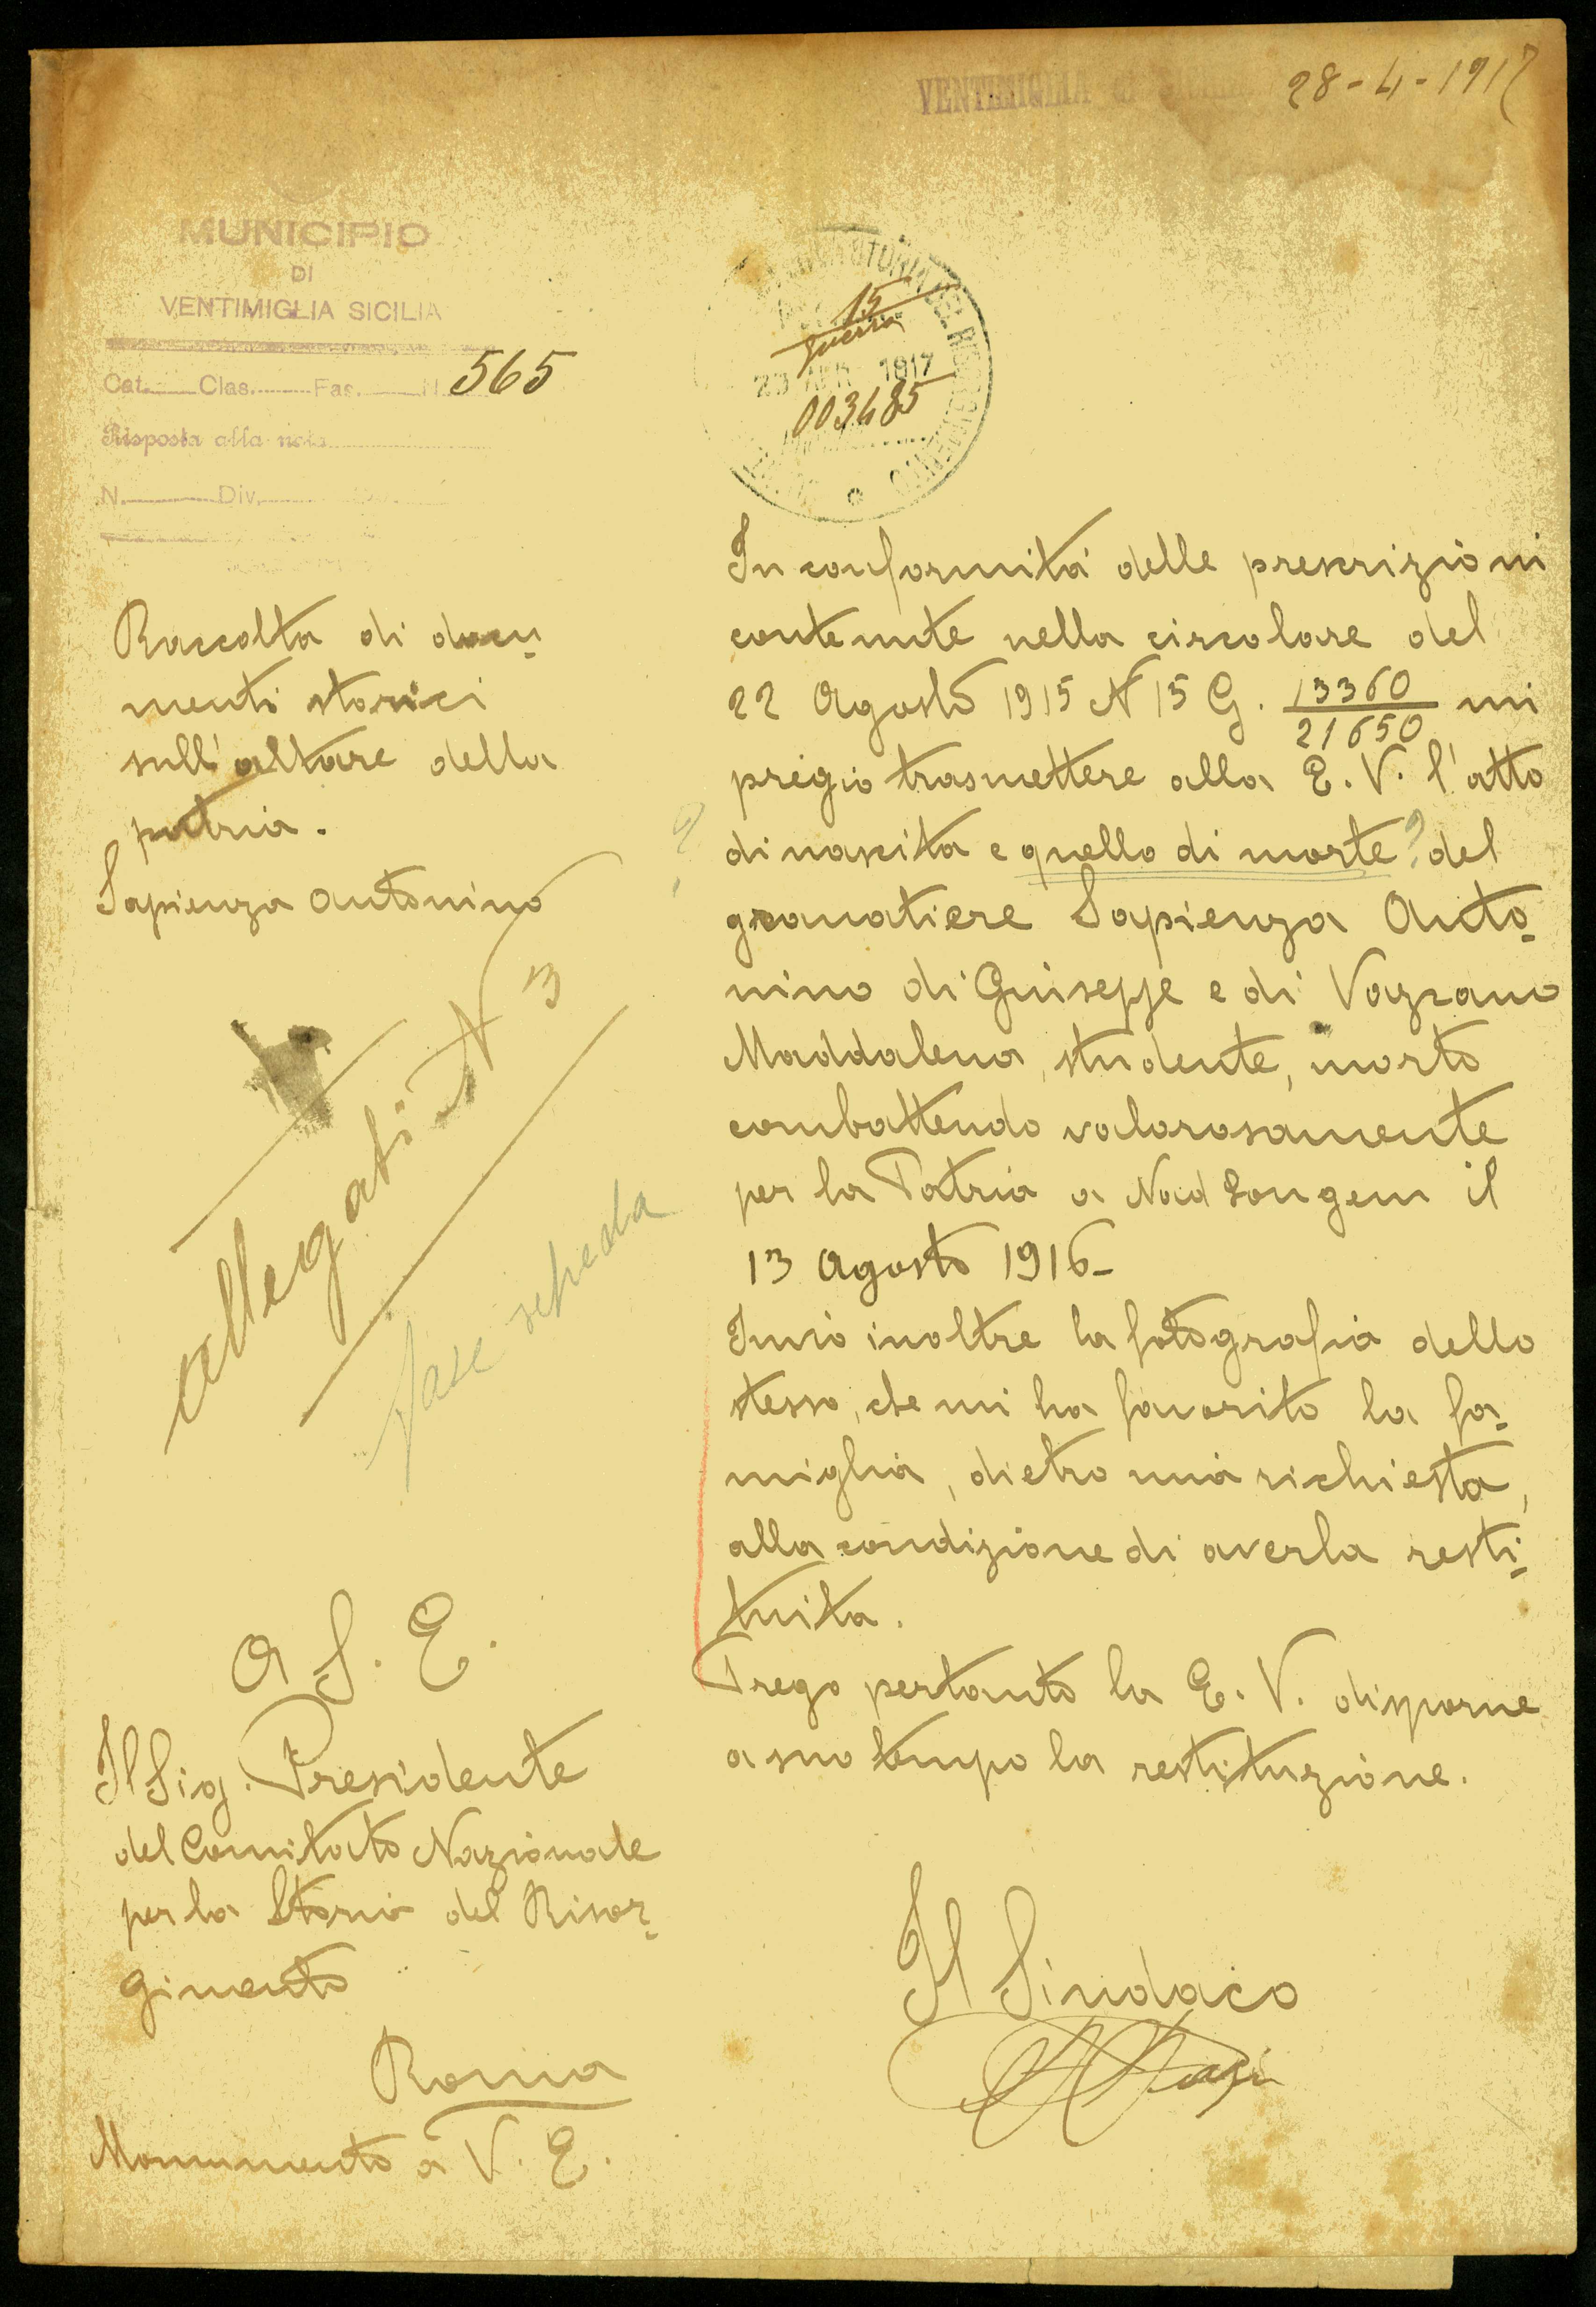 VENTIMIGLIA di SICILIA 28-4-1917
MUNICIPIO
DI
VENTIMIGLIA SICILIA
Cat. Clas. Fas. N. 565
Risposta alla nota
N. Div.
STORIA DEL RISORGIMENTO
15
Guerra
23 APR 1917
003485
Raccolta di docu-
menti storici
sull'altare della
patria.
Sapienza Antonino
allegati N 3
fare scheda
A S. E.
Il Sig. Presidente
del Comitato Nazionale
per la Storia del Risor-
gimento
Roma
Monumento a V. E.
In conformità delle prescrizioni
contenute nella circolare del
22 Agosto 1915 N 15 G. 13360/21650 mi
pregio trasmettere alla E. V. l'atto
di nascita e quello di morte ? del
granatiere Sapienza Anto-
nino di Giuseppe e di
Maddalena, studente, morto
combattendo valorosamente
per la Patria a il
13 Agosto 1916-
Invio inoltre la fotografia dello
stesso, che mi ha favorito la fa-
miglia, dietro mia richiesta,
alla condizione di averla resti-
tuita.
Prego pertanto la E. V. disporne
a suo tempo la restituzione.
Il Sindaco